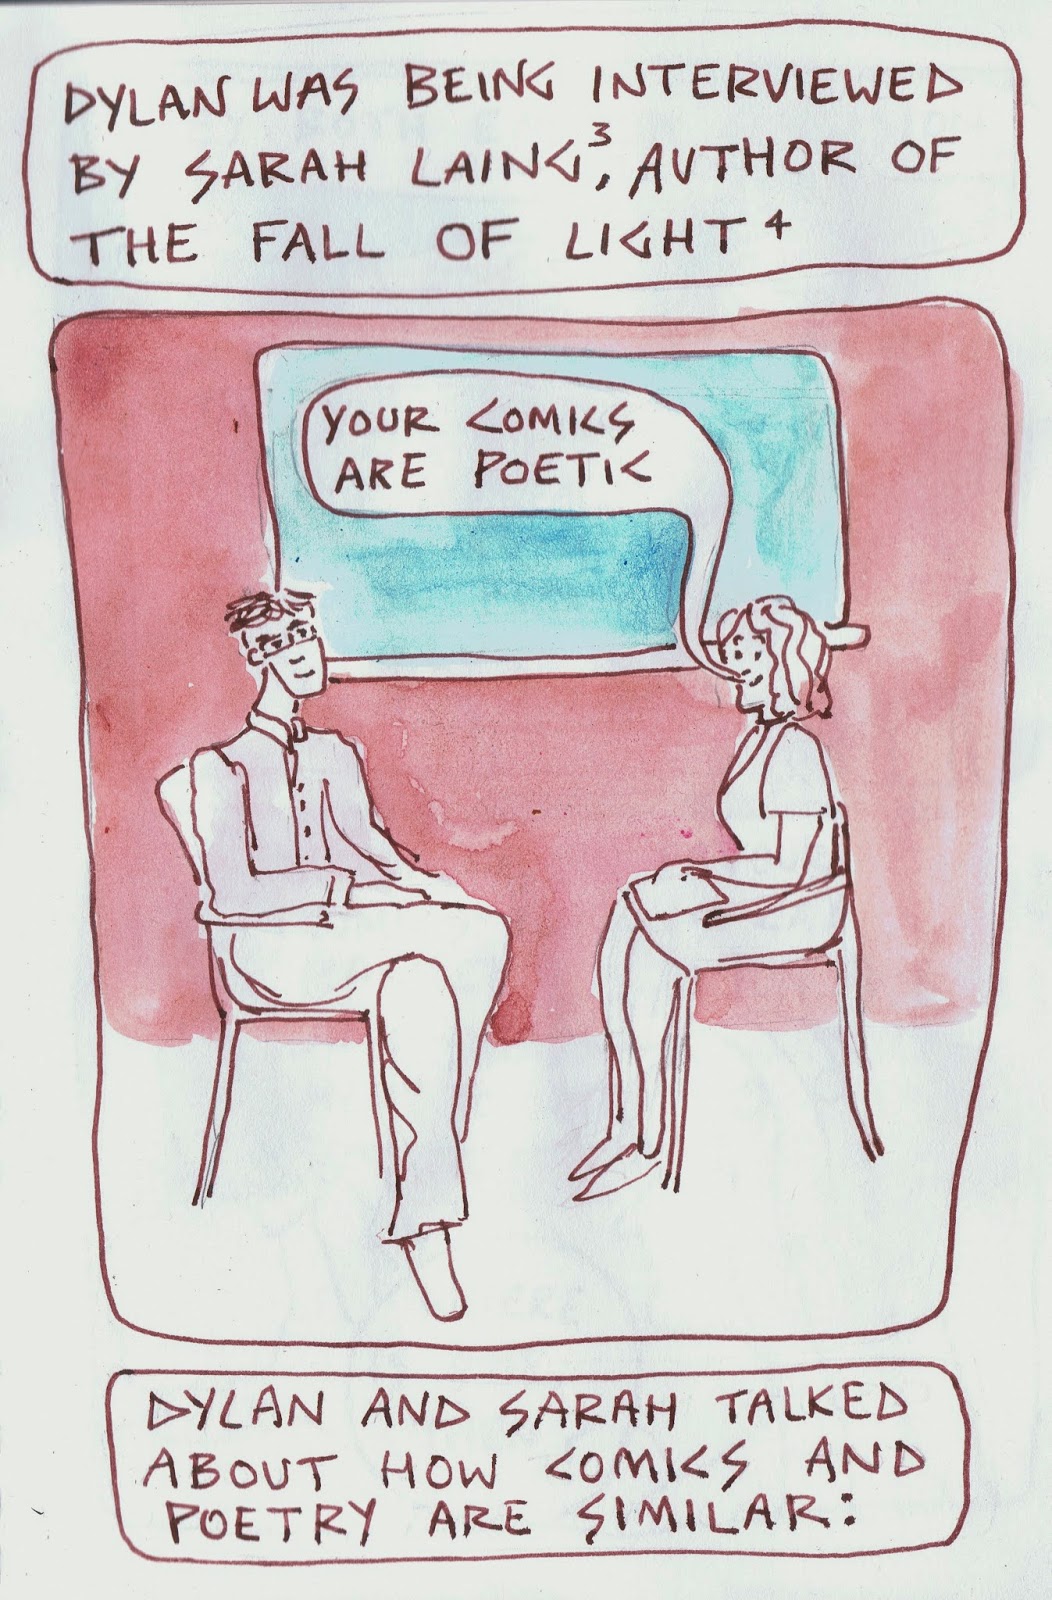 DYLAN WAS BEING INTERVIEWED
BY SARAH LAING³, AUTHOR OF
THE FALL OF LIGHT ⁴
YOUR COMICS
ARE POETIC
DYLAN AND SARAH TALKED
ABOUT HOW COMICS AND
POETRY ARE SIMILAR: